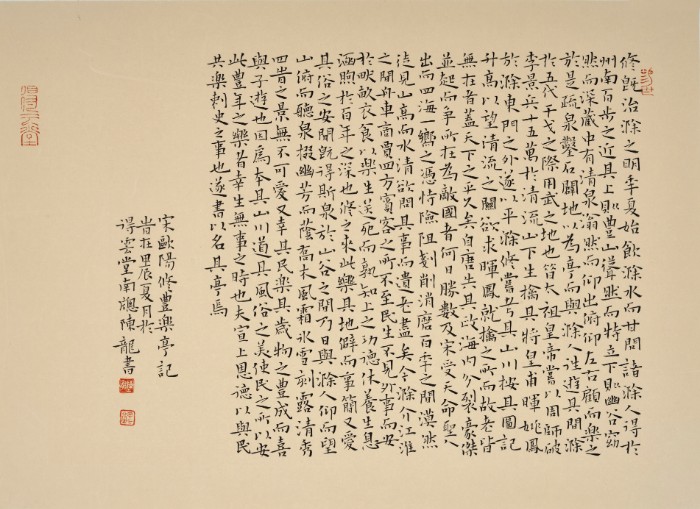 修既治滁之明年夏始飲滁水而甘問諸滁人得於
州南百步之近其上則豐山聳然而特立下則幽谷窈
然而深藏中有清泉滃然而仰出俯仰左右顧而樂之
於是疏泉鑿石闢地以為亭而與滁人往遊其間滁
於五代干戈之際用武之地也昔太祖皇帝嘗以周師破
李景兵十五萬於清流山下生擒其將皇甫暉姚鳳
於滁東門之外遂以平滁修嘗考其山川按其圖記
升高以望清流之關欲求暉鳳就擒之所而故老皆
無在者蓋天下之平久矣自唐失其政海內分裂豪傑
並起而爭所在為敵國者何可勝數及宋受天命聖人
出而四海一嚮之憑恃險阻剗削消磨百年之間漠然
徒見山高而水清欲問其事而遺老盡矣今滁介江淮
之間舟車商賈四方賓客之所不至民生不見外事而安
於畎畝衣食以樂生送死而孰知上之功德休養生息
涵煦於百年之深也修之來此樂其地僻而事簡又愛
其俗之安閒既得斯泉於山谷之間乃日與滁人仰而望
山俯而聽泉掇幽芳而蔭喬木風霜冰雪刻露清秀
四旹之景無不可愛又幸其民樂其歲物之豐成而喜
與予遊也因為本其山川道其風俗之美使民之所以安
此豐年之樂者幸生無事之時也夫宣上恩德以與民
共樂刺史之事也遂書以名其亭焉
宋歐陽修豐樂亭記
旹在甲辰夏月於
得雲堂南窗陳龍書